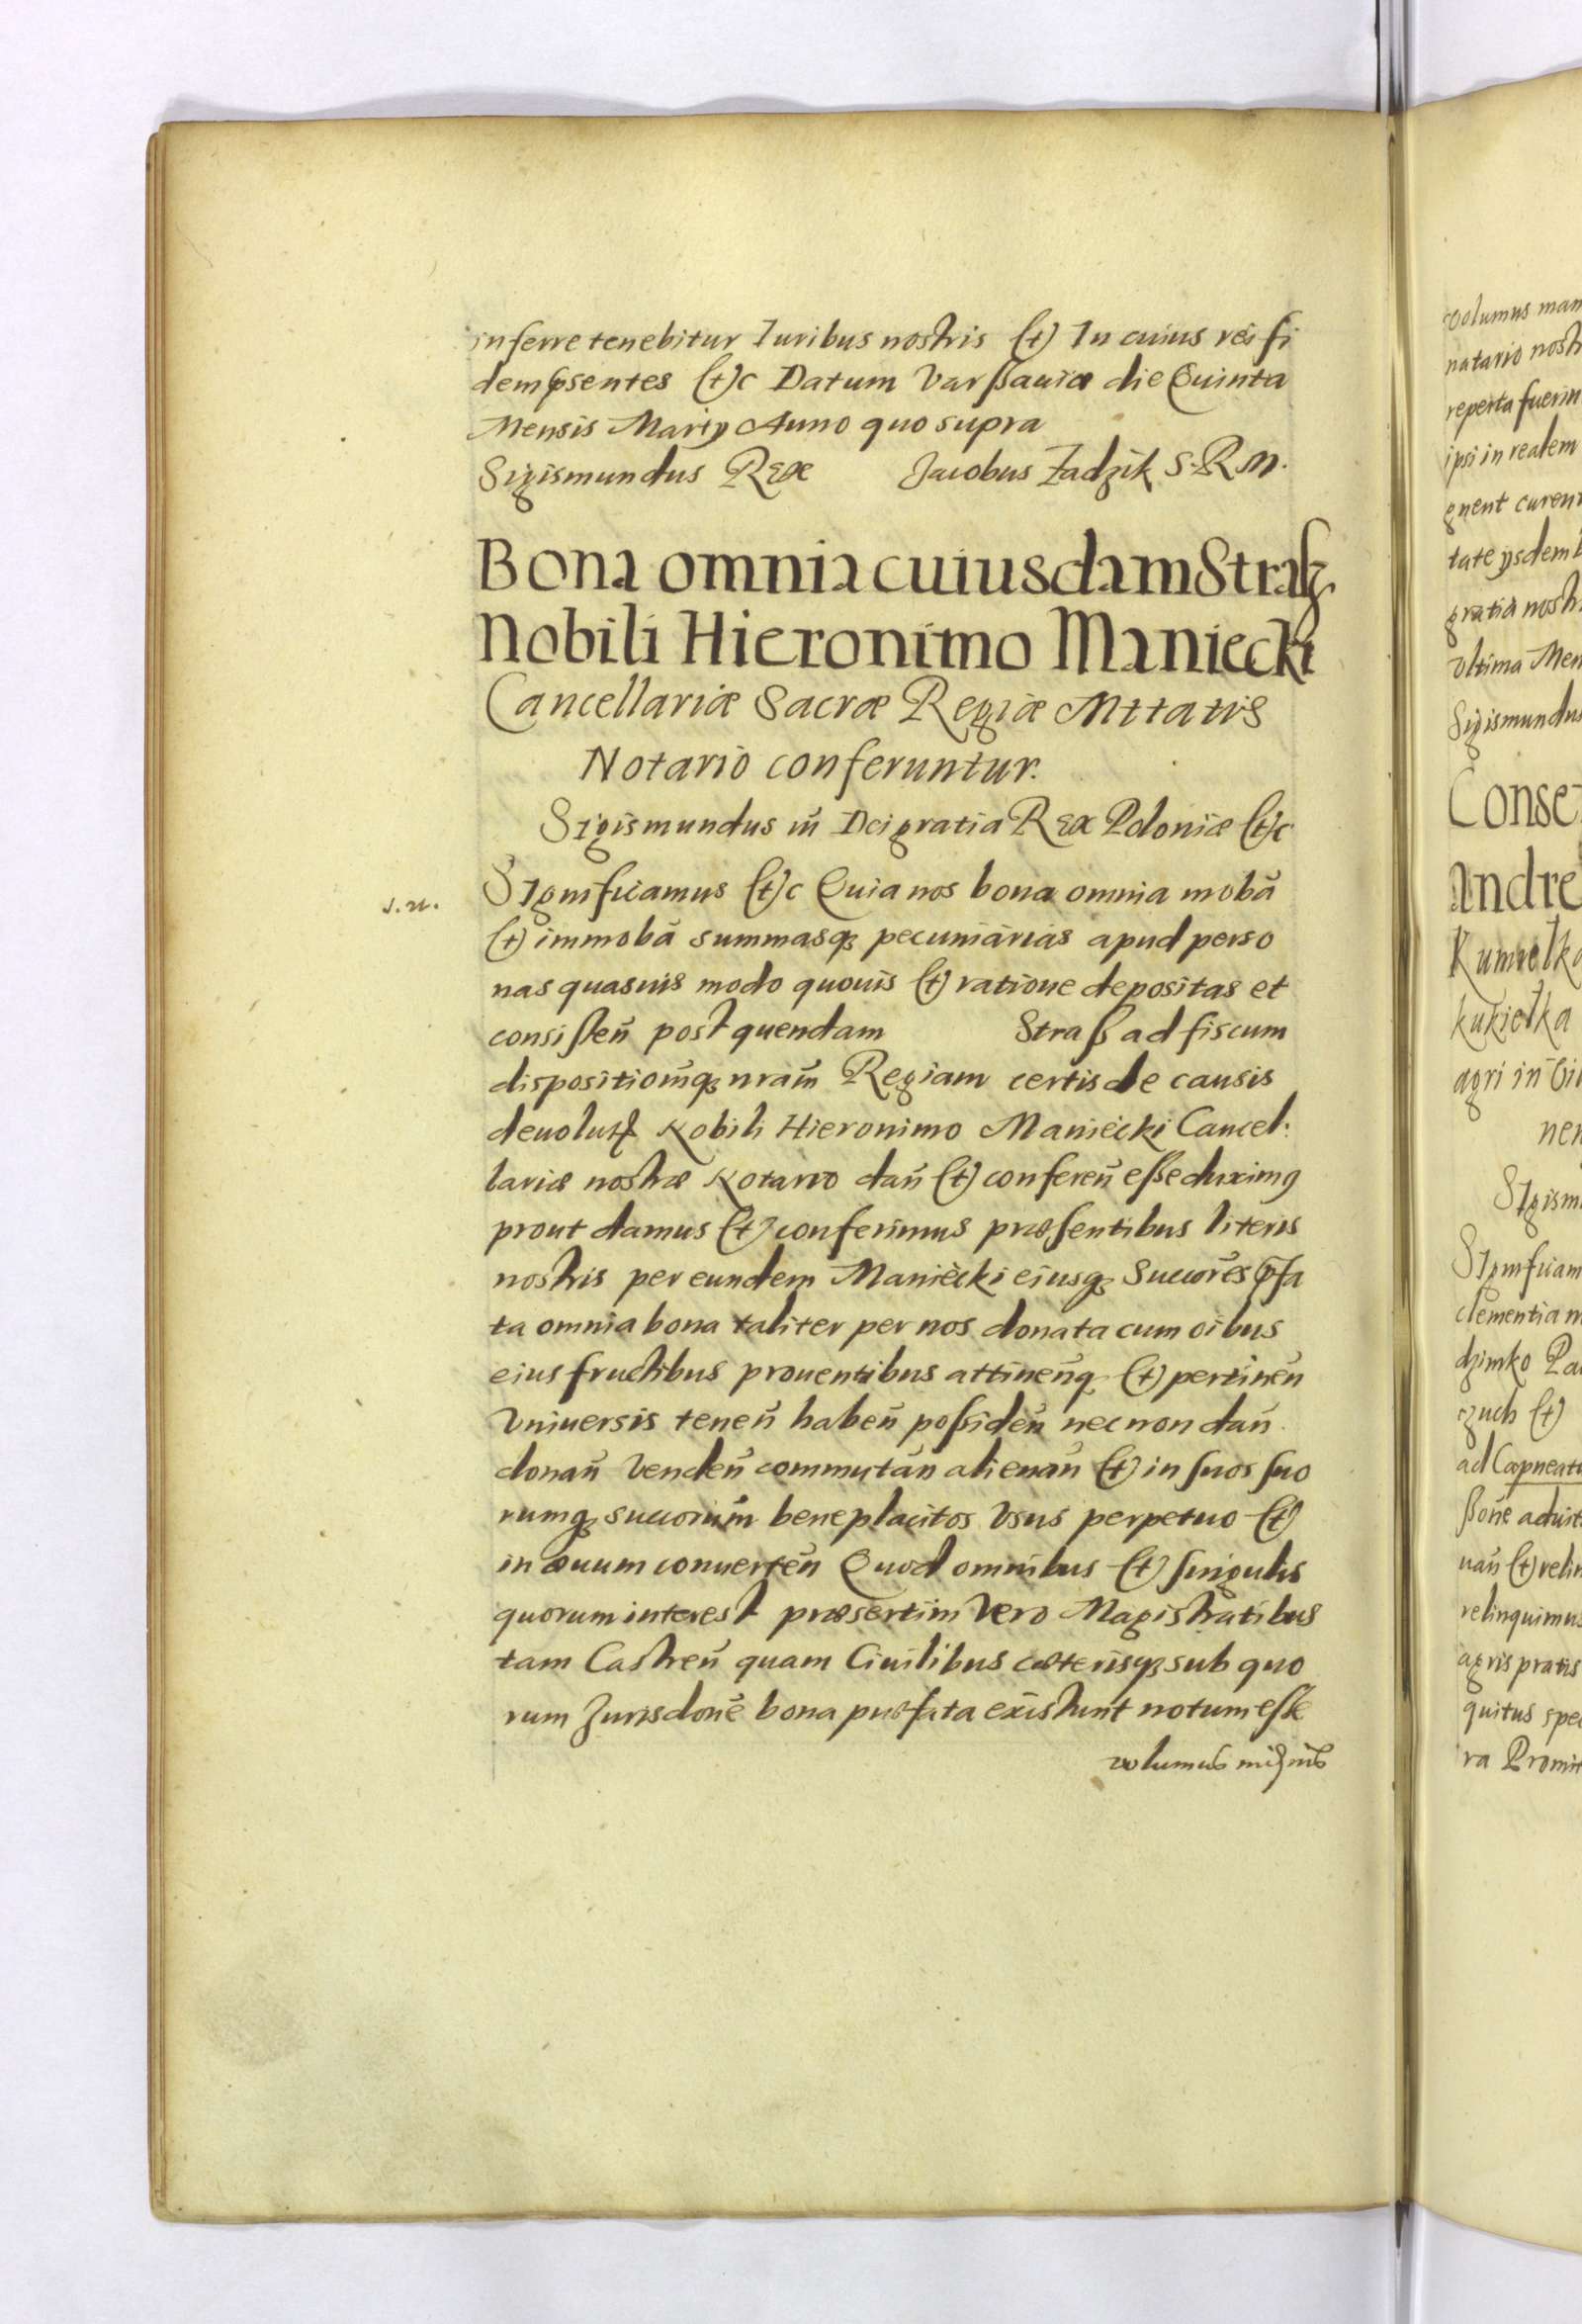 inferre tenebitur Iuribus nostris (et) In cuius rei fi
dem p̄sentes (et)c Datum Varßauiæ die Quinta
Mensis Marty Anno quo supra
Sigismundus Rex Jacobus Zadzik S. R. M.
Bona omnia cuiusdam Straß
Nobili Hieronimo Maniecki
Cancellariæ Sacræ Regiæ Mttatis
Notario conferuntur.
Sigismundus iii Dei gratia Rex Poloniæ (et)c
Significamus (et)c Quia nos bona omnia mobā
(et) immobā summasq₃ pecuniarias apud perso
nas quasuis modo quouis (et) ratione depositas et
consisten̄ post quendam Straß ad fiscum
dispositiōmq₃ nram̄ Regiam certis de causis
deuolut Nobili Hieronimo Maniecki Cancel:
lariæ nostræ Notario dan̄ (et) conferen̄ eße duximꝰ
prout damus (et) conferimus præsentibus literis
nostris per eundem Maniecki eiusq₃ Succōres p̄fa
ta omnia bona taliter per nos donata cum oībus
eius fructibus prouentibus attinen̄q₃ (et) pertinen̄
Vniuersis tenen̄ haben̄ poßiden̄ nec non dan̄
donan̄ Venden̄ commutan̄ alienan̄ (et) in suos suo
rumq₃ succorum̄ beneplacitos Vsus perpetuo (et)
in æuum conuerten̄ Quod omnibus (et) singulis
quorum interest præsertim Vero Magistratibus
tam Castren̄ quam Ciuilibus cæterisq₃ sub quo
rum Jurisdonē bona præfata existunt notum eße
volumus
volumus man
natario nostr
reperta fuerin
ipsi in realem
gnent curent
tate ysdem b
gratia nostr
Vltima Men
Sigismundus
Conse
Andre
kukiełka
agri in Ci
nen
Sigism
Significam
clementia m
dzimko Pa
czuch (et)
relinquimus
agris pratis
quitus spec
ra Promit